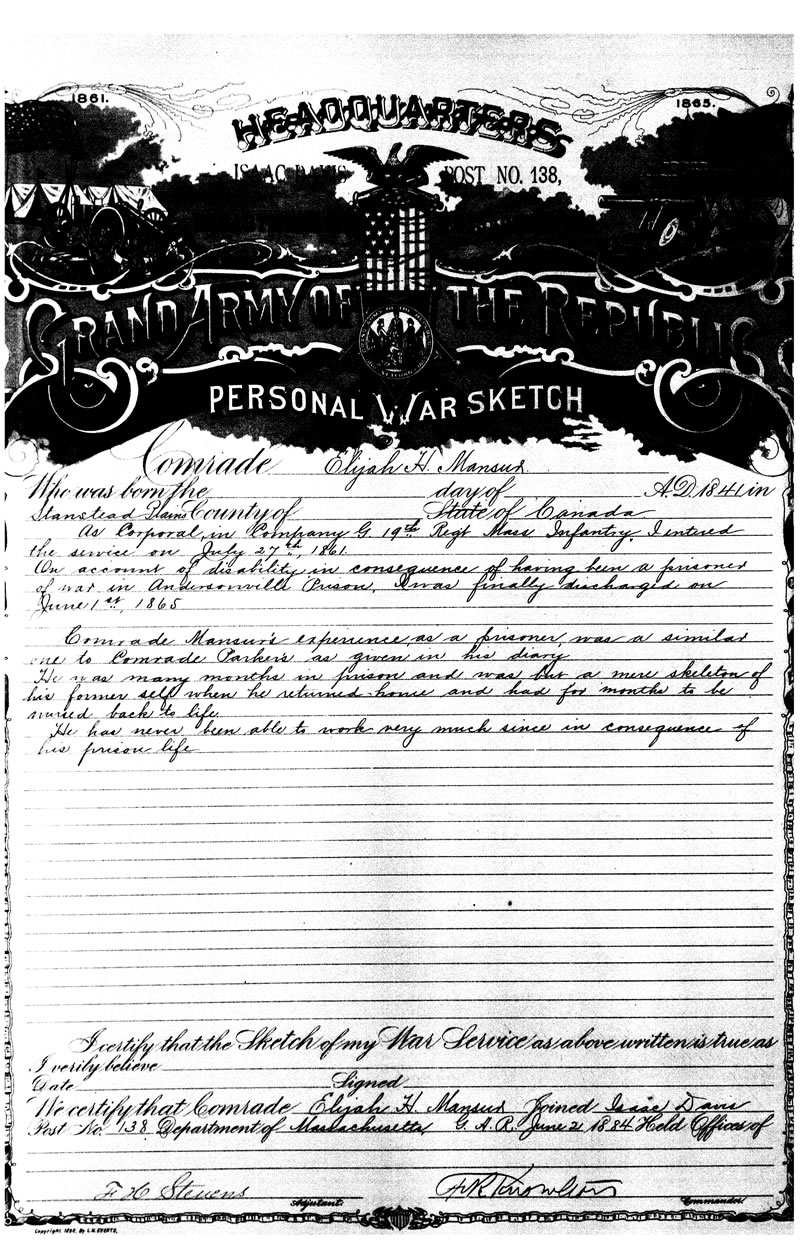 1861.
1865.
HEADQUARTERS
ISAAC DAVIS POST NO. 138,
GRAND ARMY OF THE REPUBLIC
PERSONAL WAR SKETCH
Comrade Elijah H. Mansur
Who was born the day of A.D. 1841 in
Stanstead Plains County of State of Canada
As Corporal, in Company G 19th Regt Mass Infantry, I entered
the service on July 27th, 1861.
On account of disability in consequence of having been a prisoner
of war in Andersonville Prison, I was finally discharged on
June 1st, 1865
Comrade Mansur's experience, as a prisoner, was a similar
one to Comrade Parker's as given in his diary
He was many months in prison and was but a mere skeleton of
his former self when he returned home and had for months to be
nursed back to life.
He has never been able to work very much since in consequence of
his prison life
I certify that the Sketch of my War Service as above written is true as
I verily believe
Date Signed
We certify that Comrade Elijah H. Mansur Joined Isaac Davis
Post No. 138 Department of Massachusetts G.A.R. June 21 1884 Held Offices of
F H Stevens
Adjutant.
Knowlton
Commander.
Copyright 1890, By L.H. EVERTS.